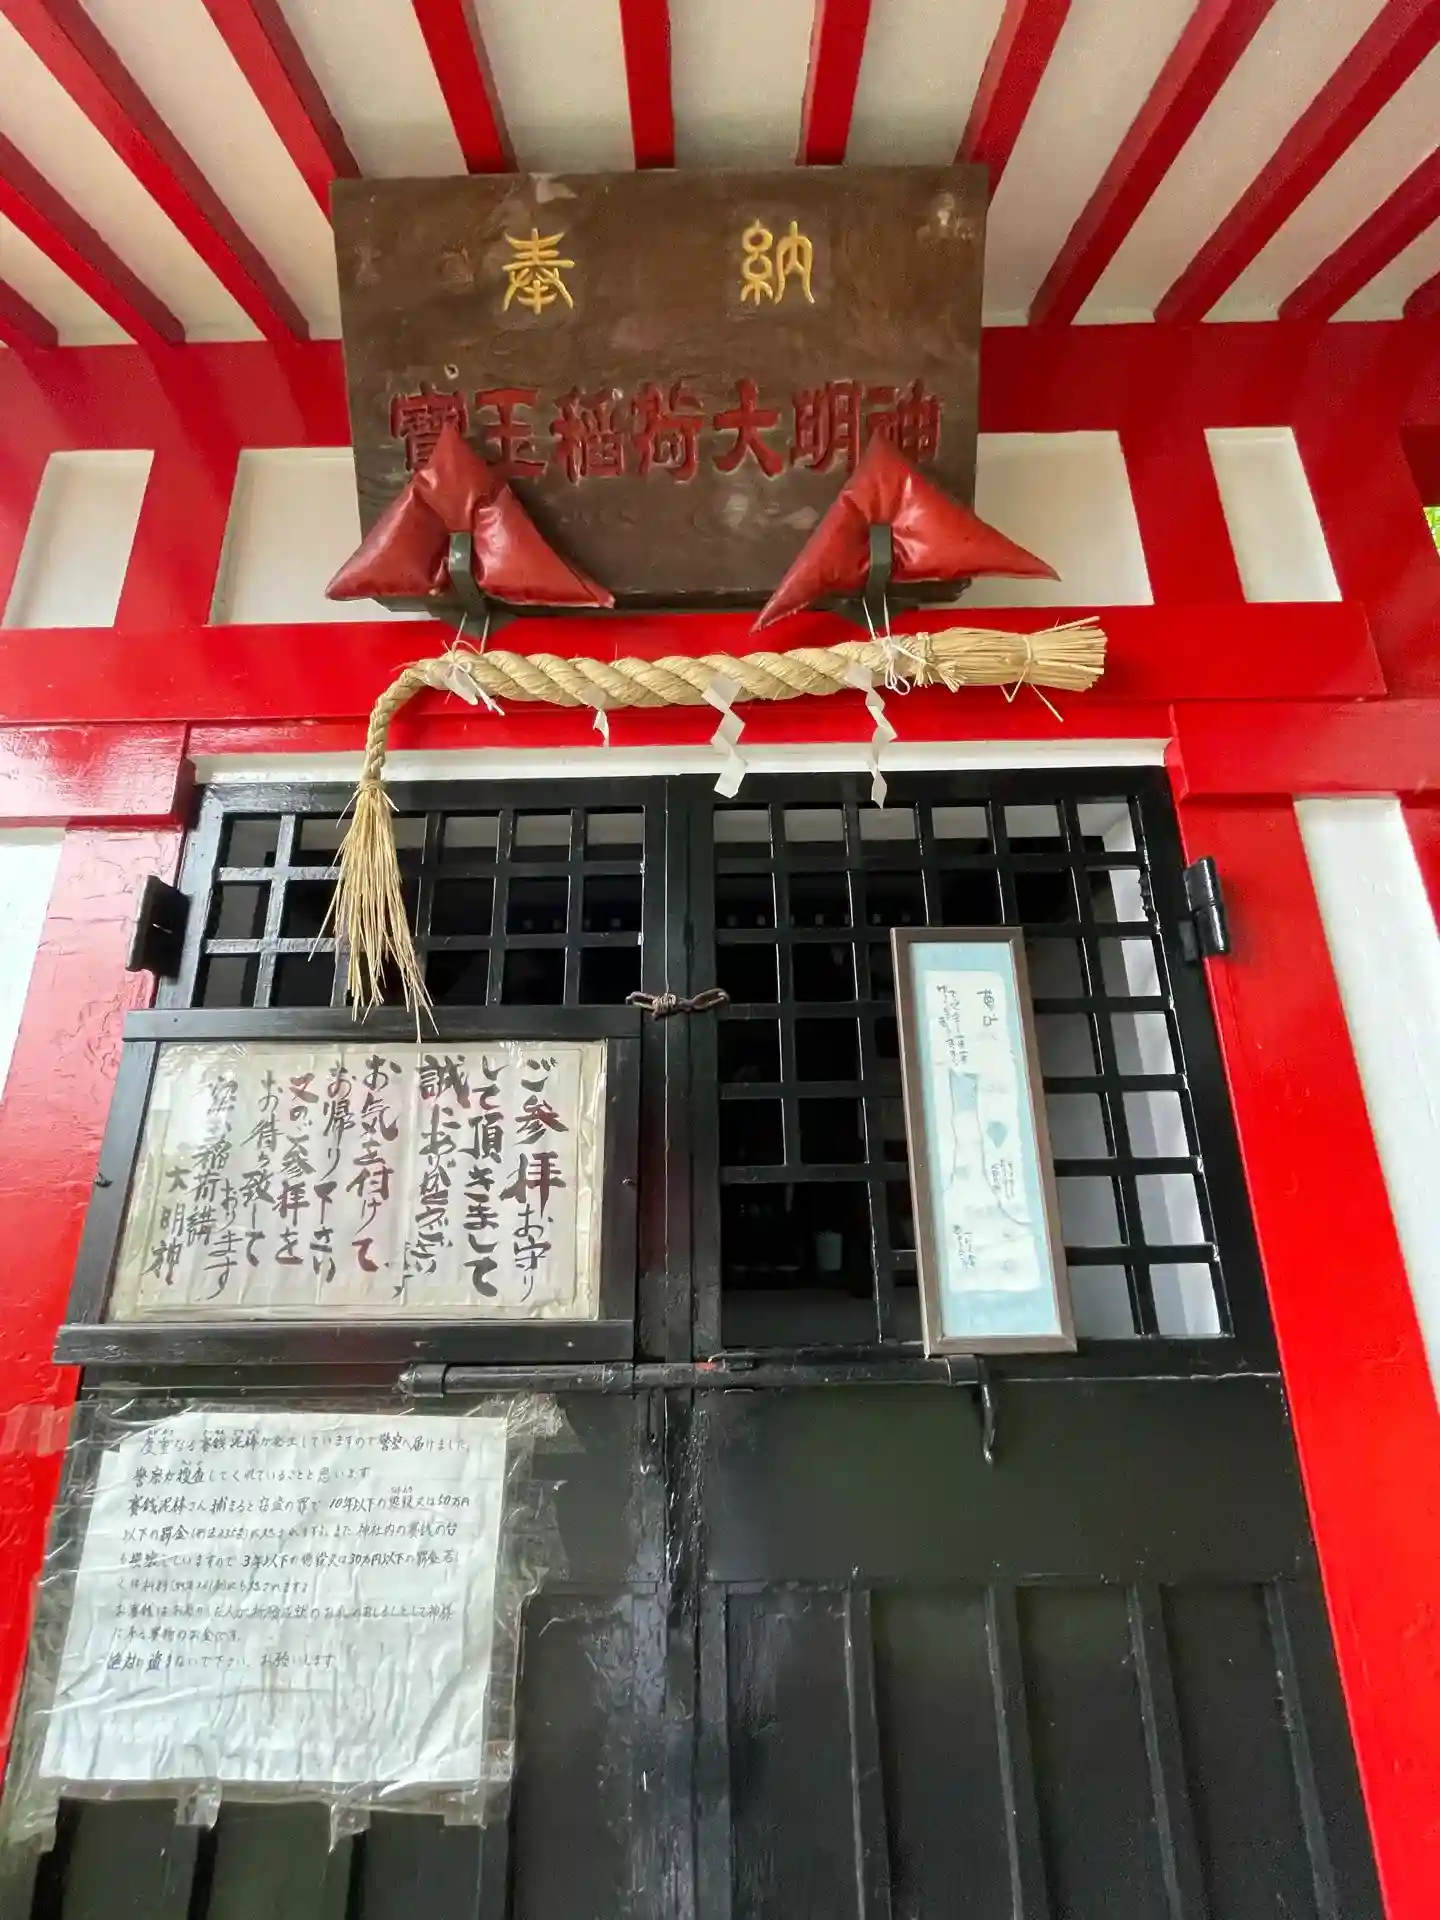 奉納
寶玉稲荷大明神
ご参拝お守り
して頂きまして
誠にありがとうござい
ます
お気を付けて
お帰り下さい
又のご参拝を
お待ち致して
おります
宝玉稲荷講
大明神
度重なる賽銭泥棒が発生していますので警察へ届けました。
警察が捜査してくれていることと思います
賽銭泥棒さん捕まると窃盗の罪で10年以下の懲役又は50万円
以下の罰金(刑法235条)に処されます。また神社内の賽銭の台
も ていますので3年以下の懲役又は30万円以下の罰金若し
くは科料(刑法261条)にも処されます
お賽銭はお参りした人が祈願 のお礼のおしるしとして神様
に
絶対に盗まないで下さい、お願いします